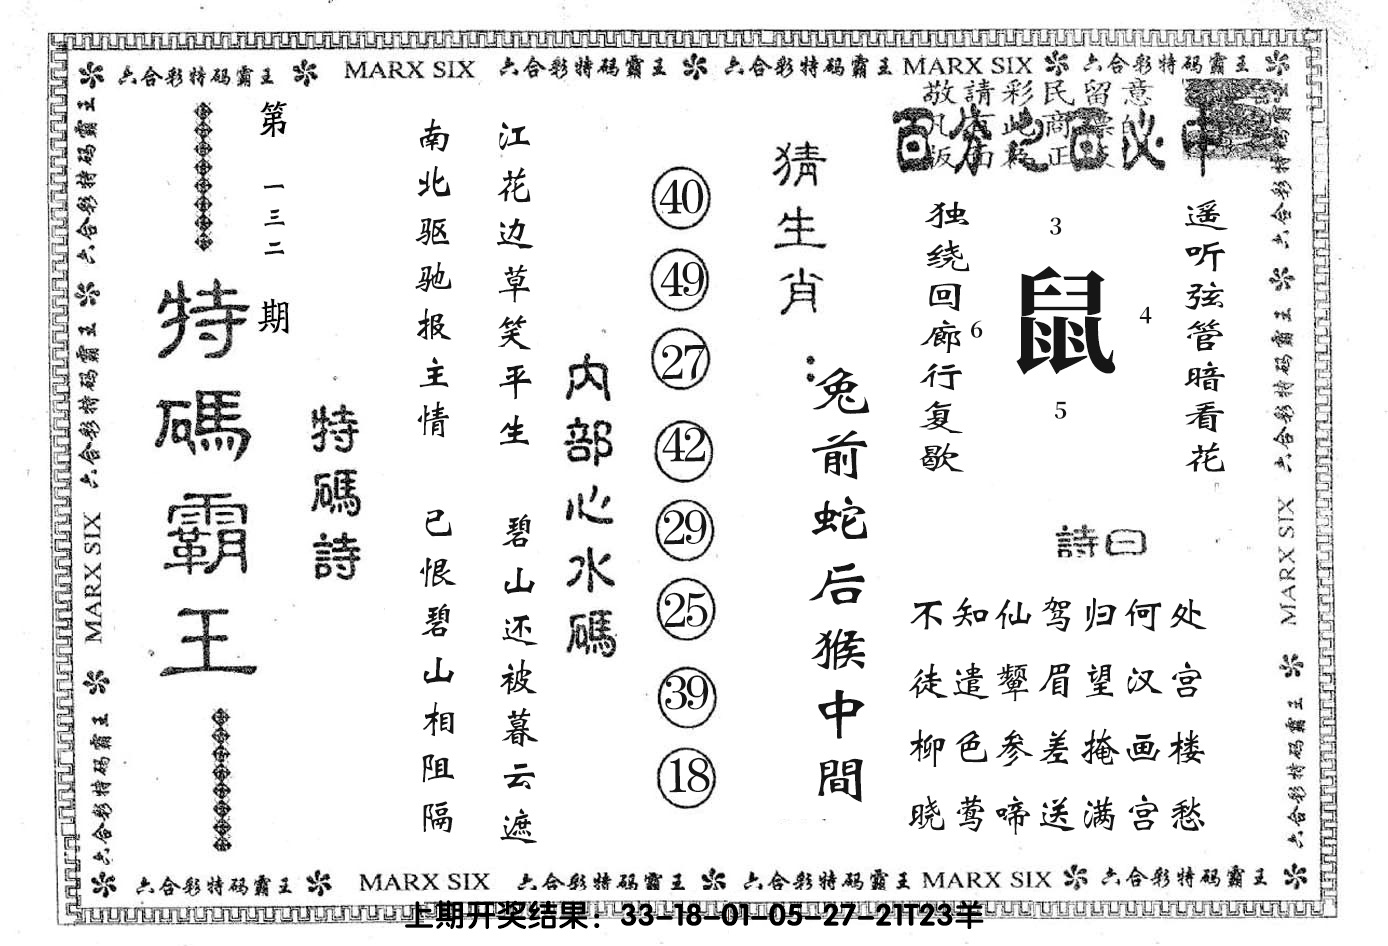 六合彩特码霸王 MARX SIX 六合彩特码霸王 六合彩特码霸王 MARX SIX 六合彩特码霸王
敬請彩民留意
百分之百必中
遥听弦管暗看花
3
鼠
4
6
5
独绕回廊行复歇
詩曰
不知仙驾归何处
徒遣颦眉望汉宫
柳色参差掩画楼
晓莺啼送满宫愁
猜生肖：
兔前蛇后猴中間
40
49
27
42
29
25
39
18
内部心水碼
江花边草笑平生 碧山还被暮云遮
南北驱驰报主情 已恨碧山相阻隔
特碼詩
第一三二期
特碼霸王
六合彩特码霸王 六合彩特码霸王 MARX SIX 六合彩特码霸王
六合彩特码霸王 六合彩特码霸王 MARX SIX 六合彩特码霸王
六合彩特码霸王 MARX SIX 六合彩特码霸王 六合彩特码霸王 MARX SIX 六合彩特码霸王
上期开奖结果：33-18-01-05-27-21T23羊